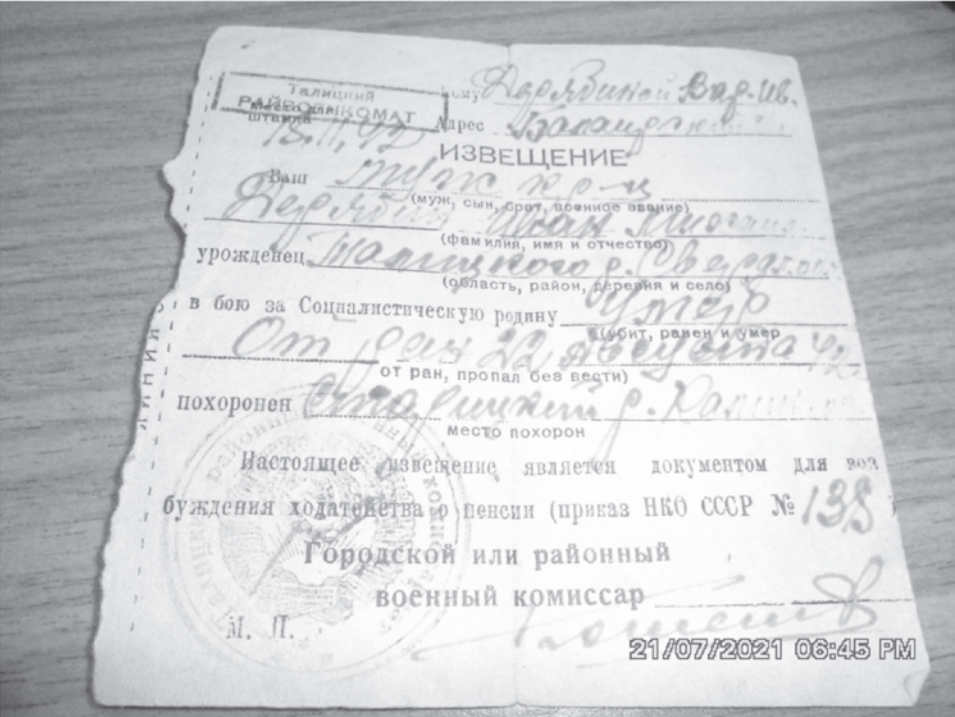 Талицкий
РАЙВОЕНКОМАТ
Место для
штампа
13.11.42
Кому Дерябиной Вар. Ив.
Адрес
ИЗВЕЩЕНИЕ
Ваш муж кр-ц
(муж, сын, брат, военное звание)
Дерябин Иван
(фамилия, имя и отчество)
урожденец Талицкого р. Свердлов
(область, район, деревня и село)
в бою за Социалистическую родину умер
(убит, ранен и умер
От ран 22 августа 42
от ран, пропал без вести)
похоронен Старицкий р. Калинин
место похорон
Настоящее извещение является документом для воз
буждения ходатайства о пенсии (приказ НКО СССР № 138
Городской или районный
военный комиссар
М. П.
ЛИНИЯ
21/07/2021 06:45 PM